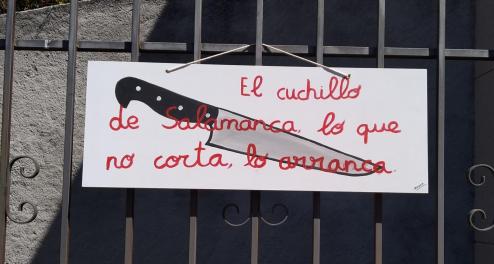 El cuchillo
de Salamanca, lo que
no corta, lo arranca.